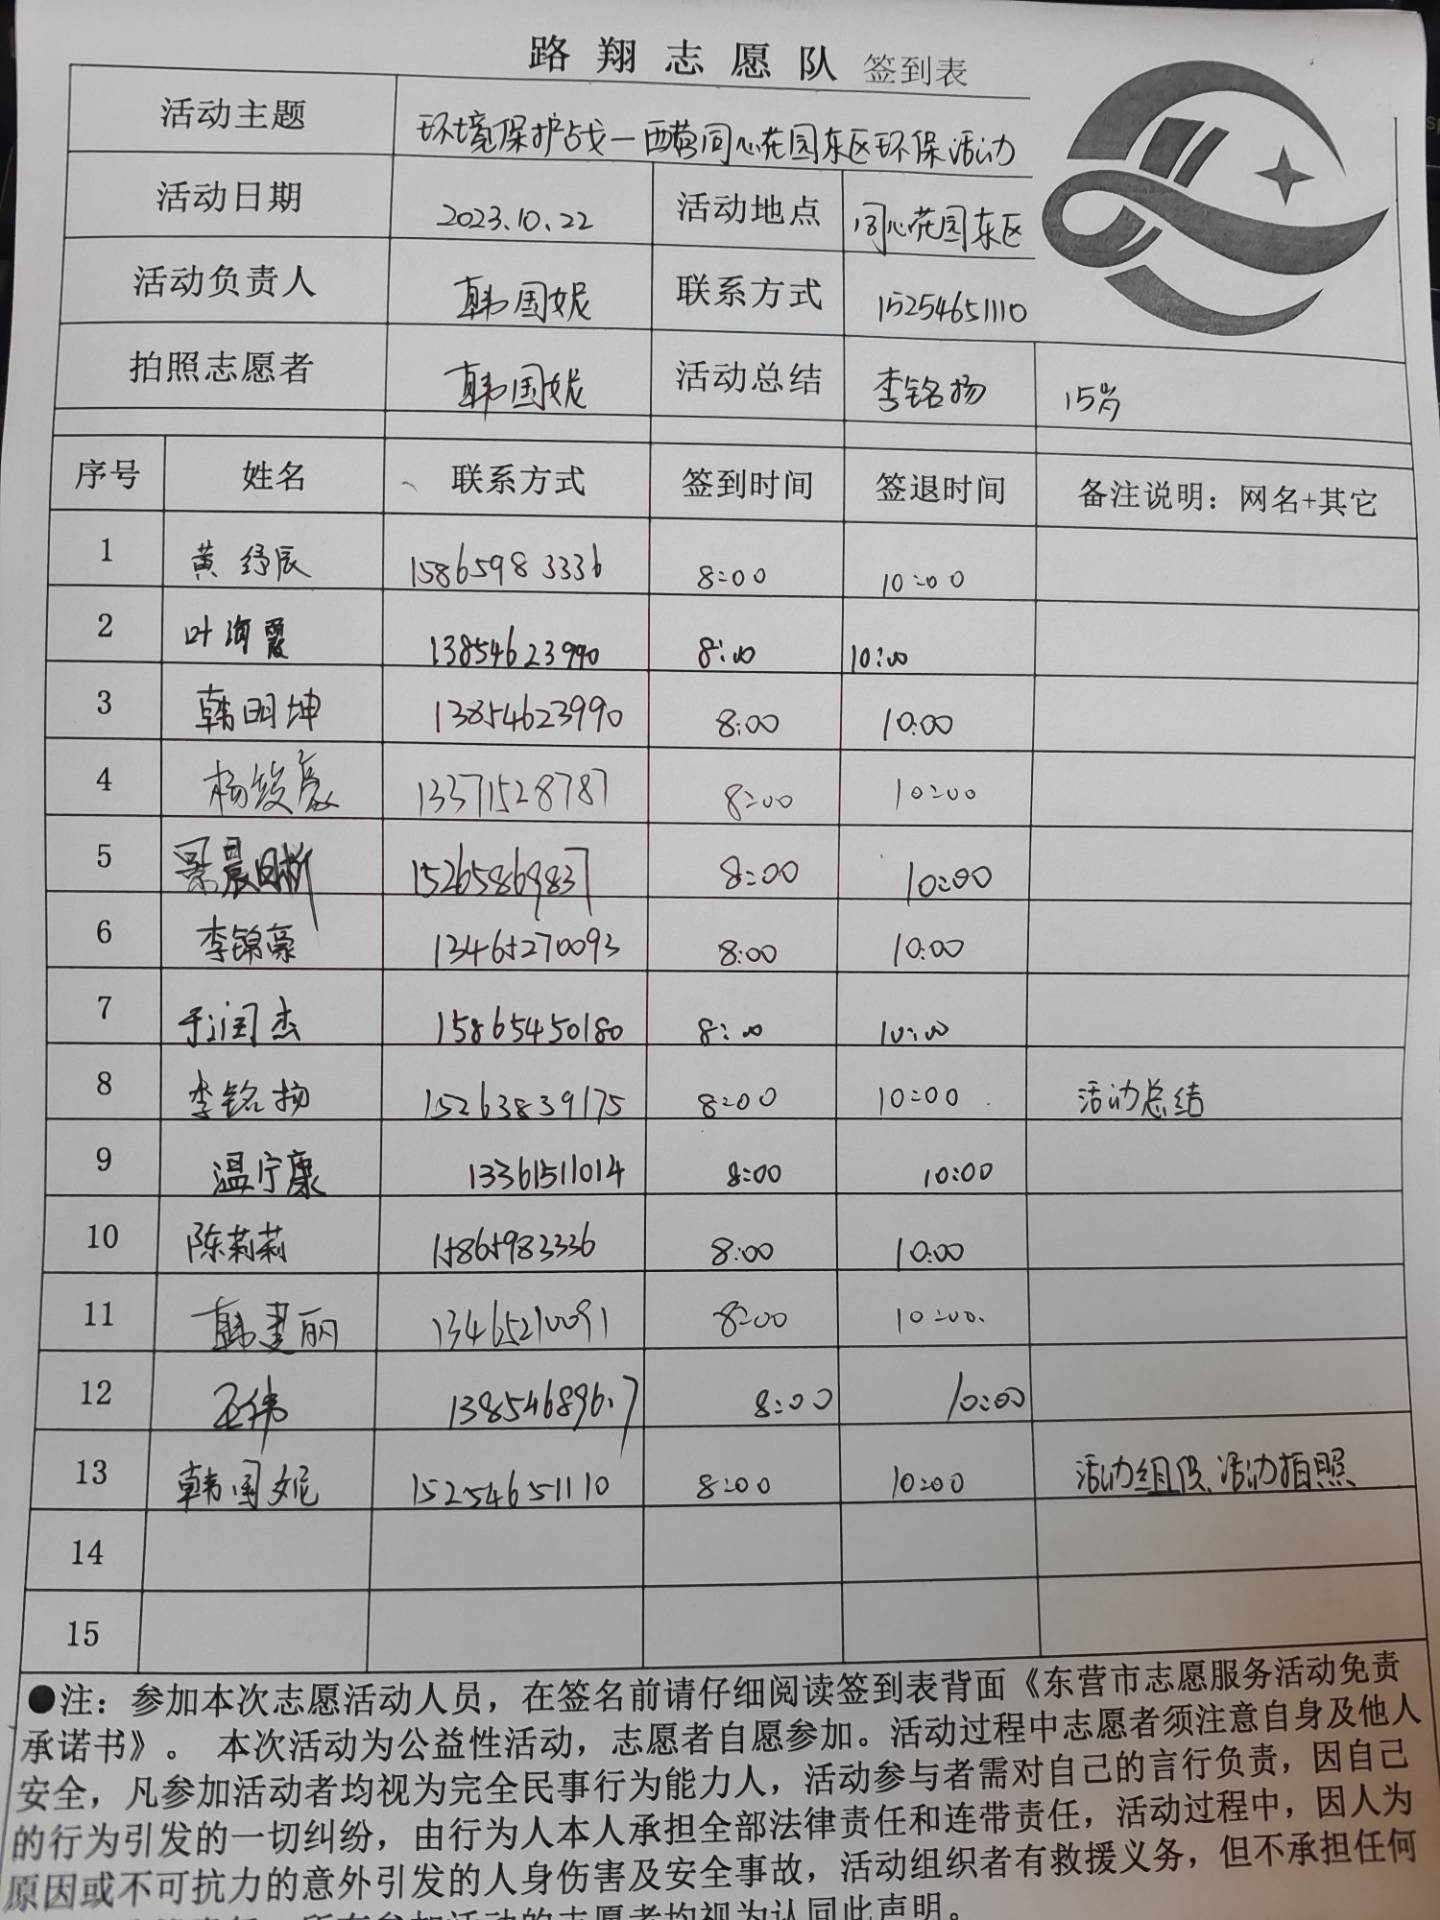 路翔志愿队 签到表
活动主题 环境保护战—西营同心花园东区环保活动
活动日期 2023.10.22 活动地点 同心花园东区
活动负责人 韩国妮 联系方式 15254651110
拍照志愿者 韩国妮 活动总结 李铭扬 15岁
序号 姓名 联系方式 签到时间 签退时间 备注说明：网名+其它
1 黄绎辰 15865983336 8:00 10:00
2 叶海霞 13854623990 8:00 10:00
3 韩明坤 13854623990 8:00 10:00
4 杨 13371528787 8:00 10:00
5 景晨 15265869837 8:00 10:00
6 李锦豪 13465270093 8:00 10:00
7 于润杰 15865450180 8:00 10:00
8 李铭扬 15263839175 8:00 10:00 活动总结
9 温宁康 13361511014 8:00 10:00
10 陈莉莉 15865983336 8:00 10:00
11 韩美丽 13465210091 8:00 10:00
12 王伟 8:00 10:00
13 韩国妮 15254651110 8:00 10:00 活动组队、活动拍照
14
15
●注：参加本次志愿活动人员，在签名前请仔细阅读签到表背面《东营市志愿服务活动免责
承诺书》。 本次活动为公益性活动，志愿者自愿参加。活动过程中志愿者须注意自身及他人
安全，凡参加活动者均视为完全民事行为能力人，活动参与者需对自己的言行负责，因自己
的行为引发的一切纠纷，由行为人本人承担全部法律责任和连带责任，活动过程中，因人为
原因或不可抗力的意外引发的人身伤害及安全事故，活动组织者有救援义务，但不承担任何
所有参加活动的志愿者均视为认同此声明。